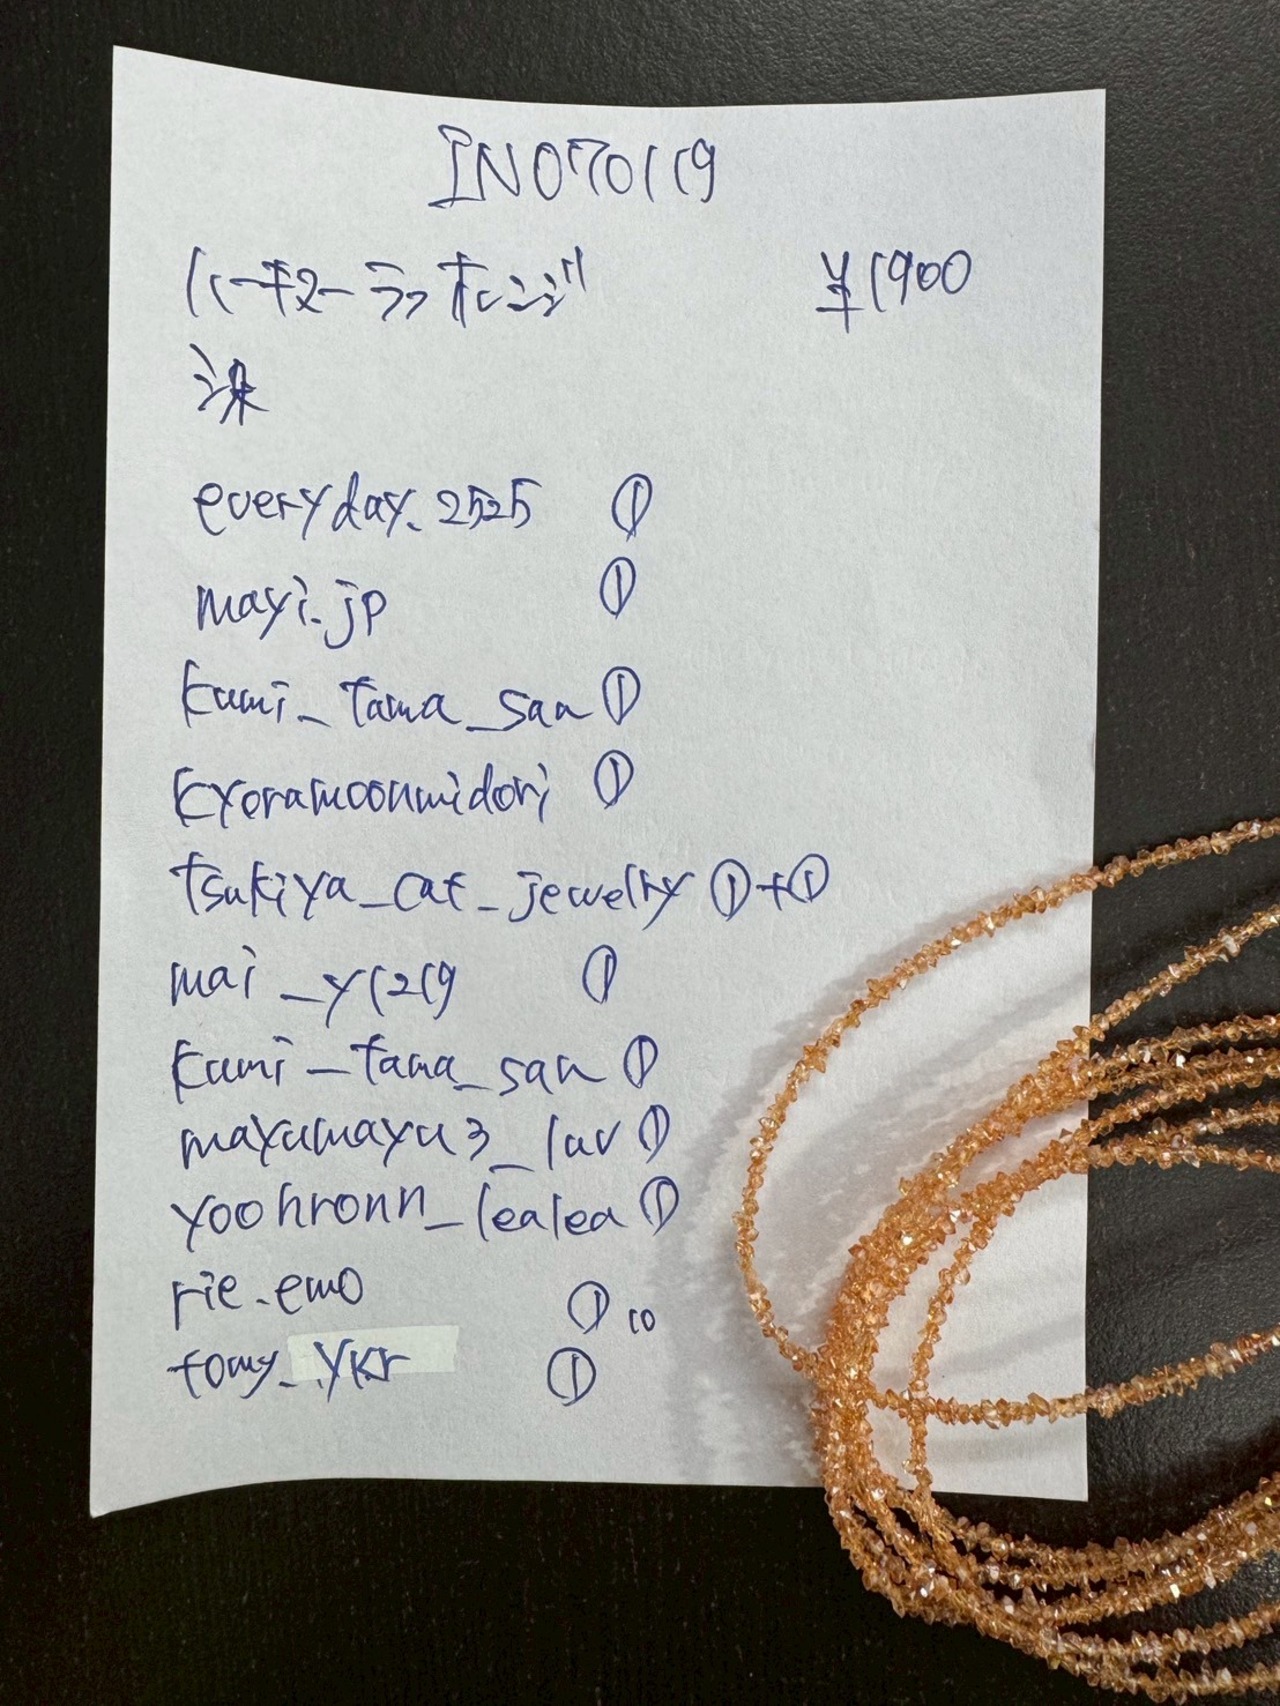 IN070119
ハーキマーラフオレンジ ¥1900
everyday.2525 ①
mayi.jp ①
kumi_tama_san ①
kyoramoonmidori ①
tsukiya_cat_jewelry ①+①
mai_y1219 ①
kumi_tama_san ①
mayumayu3_luv ①
yoohronn_lealea ①
rie.emo ① 10
tomy_ykr ①